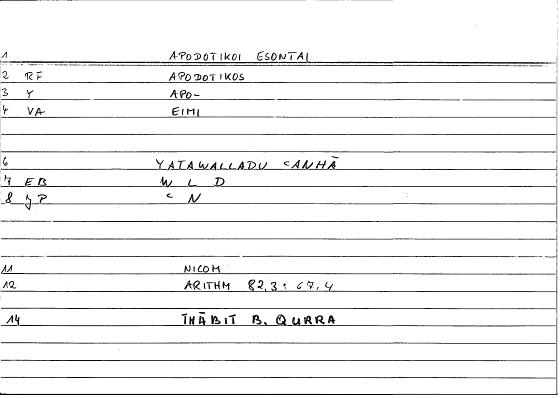 1 APODOTIKOI ESONTAI
2 RF APODOTIKOS
3 Y APO-
4 VA EIMI
6 YATAWALLADU ʿANHĀ
7 EB W L D
8 JP ʿ N
11 NICOM
12 ARITHM 82,3 : 67,4
14 ṮHĀBIT B. QURRA